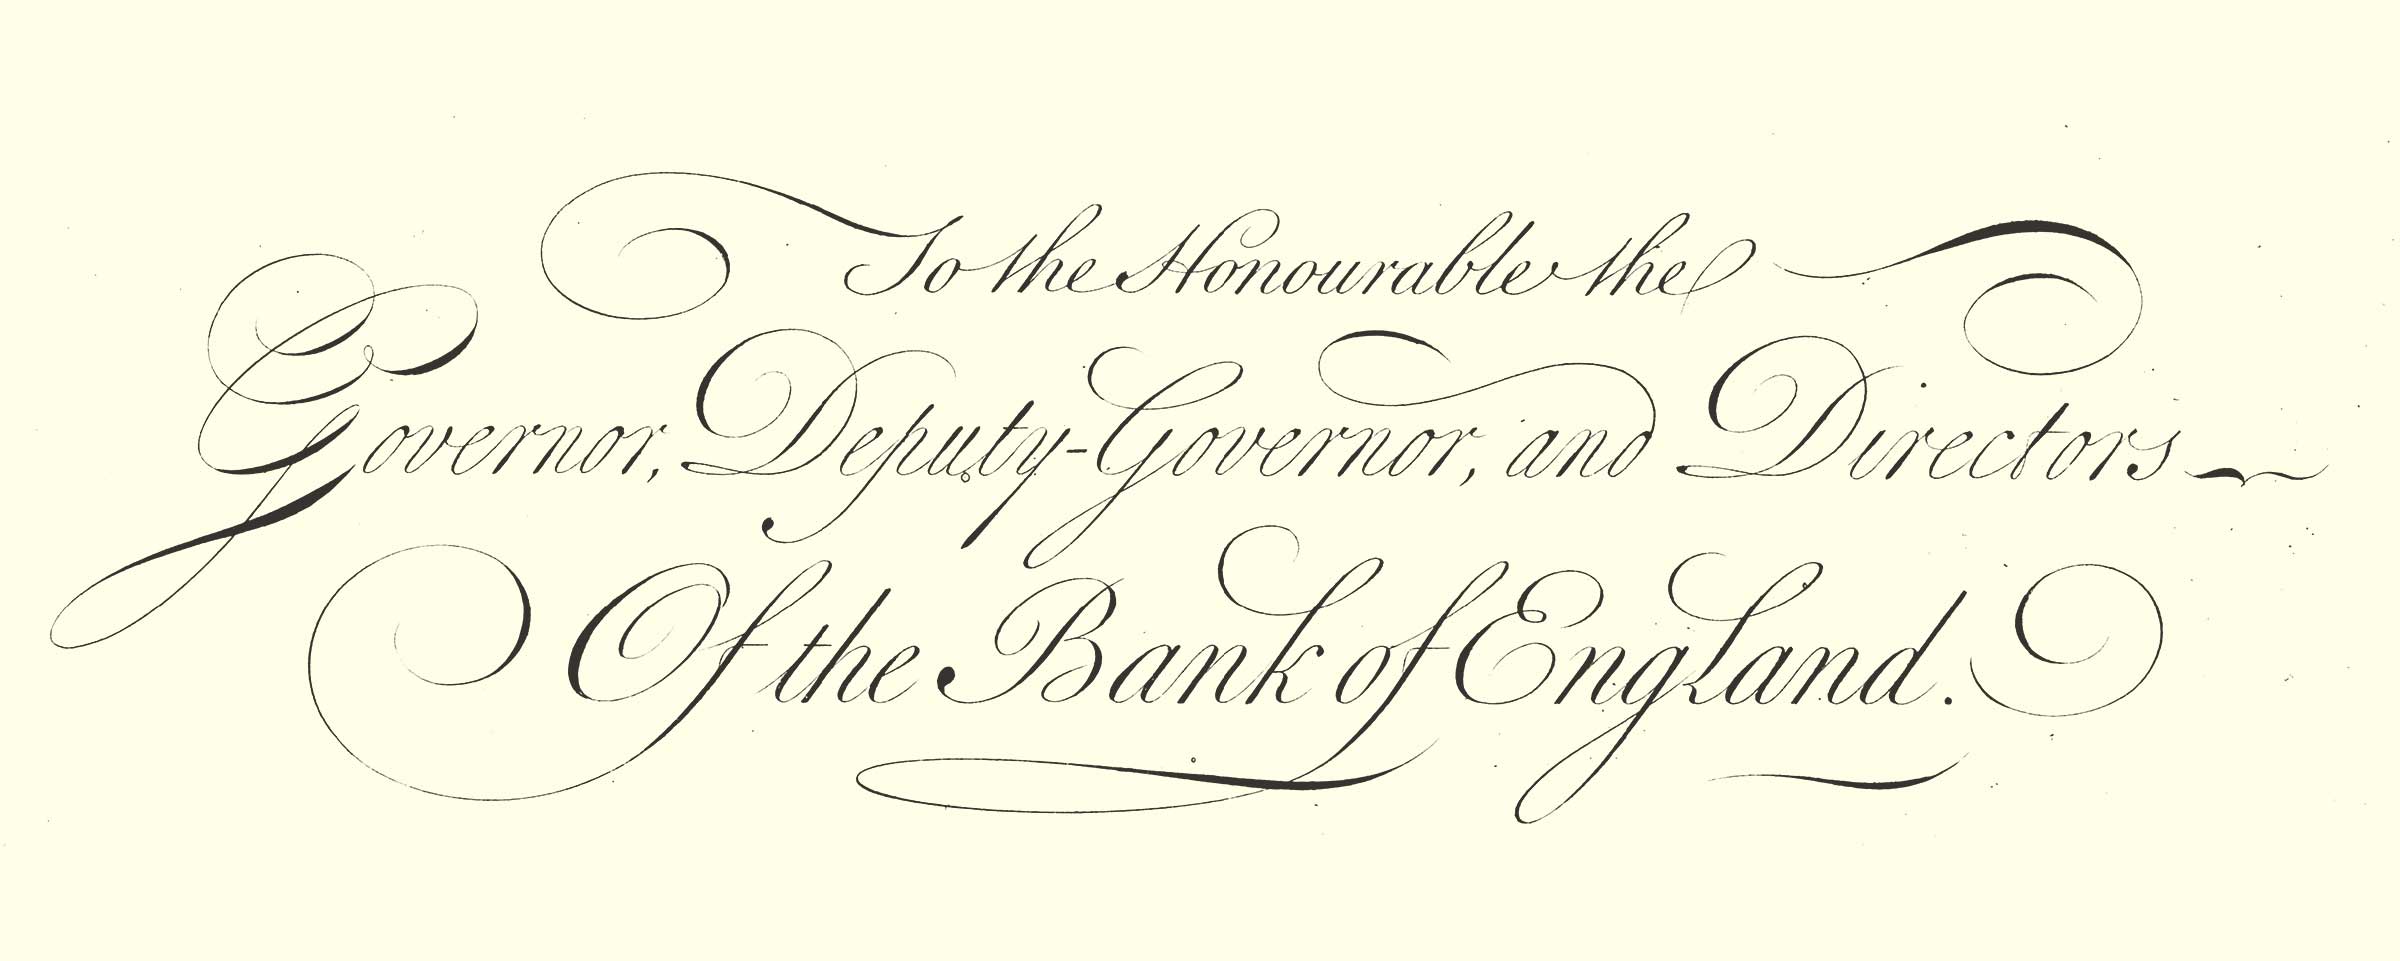 To the Honourable the
Governor, Deputy-Governor, and Directors
Of the Bank of England.